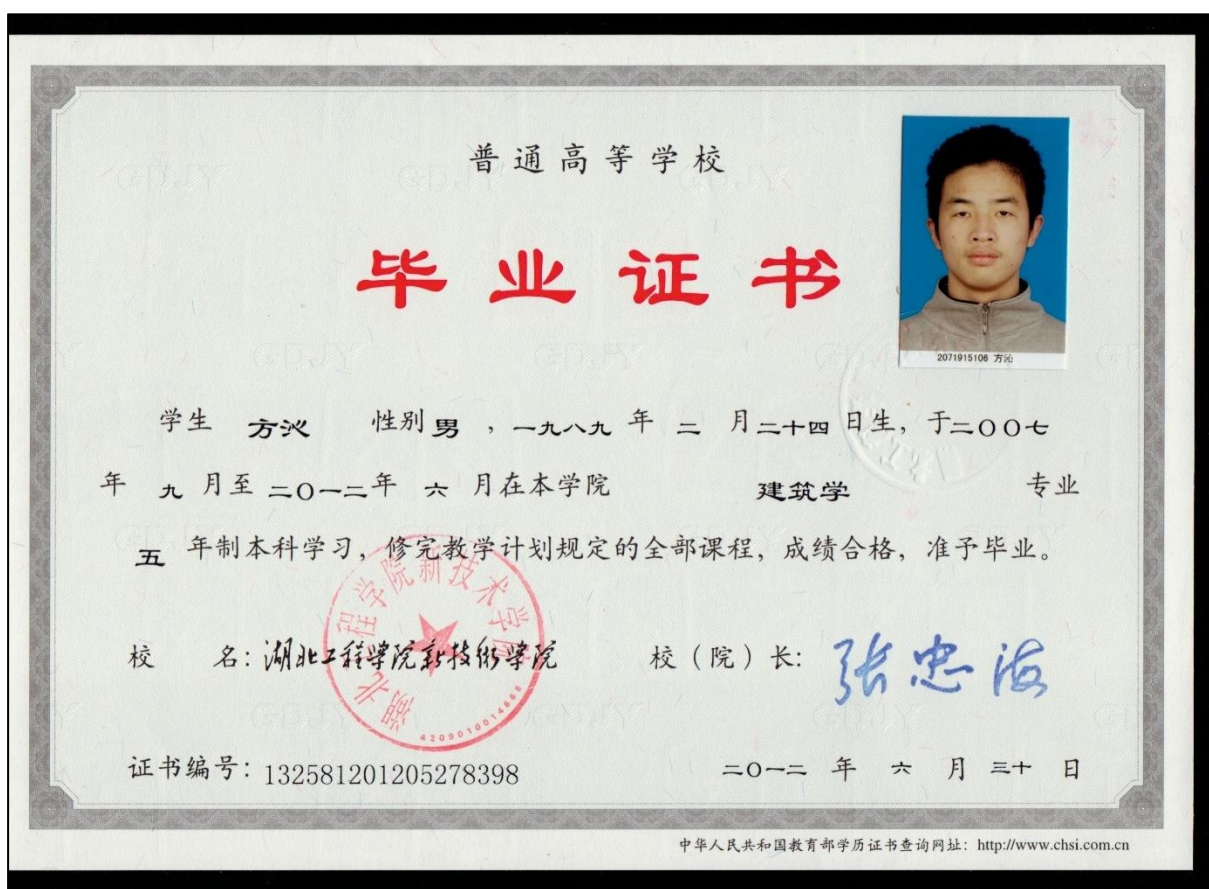 普通高等学校
毕业证书
2071915106 方沁
学生 方沁 性别 男 ，一九八九 年 二 月 二十四 日生，于二〇〇七
年 九 月至 二〇一二年 六 月在本学院 建筑学 专业
五 年制本科学习，修完教学计划规定的全部课程，成绩合格，准予毕业。
湖北工程学院新技术学院
4209010014668
校 名：湖北工程学院新技术学院 校（院）长：张忠海
证书编号：132581201205278398 二〇一二 年 六 月 三十 日
中华人民共和国教育部学历证书查询网址：http://www.chsi.com.cn